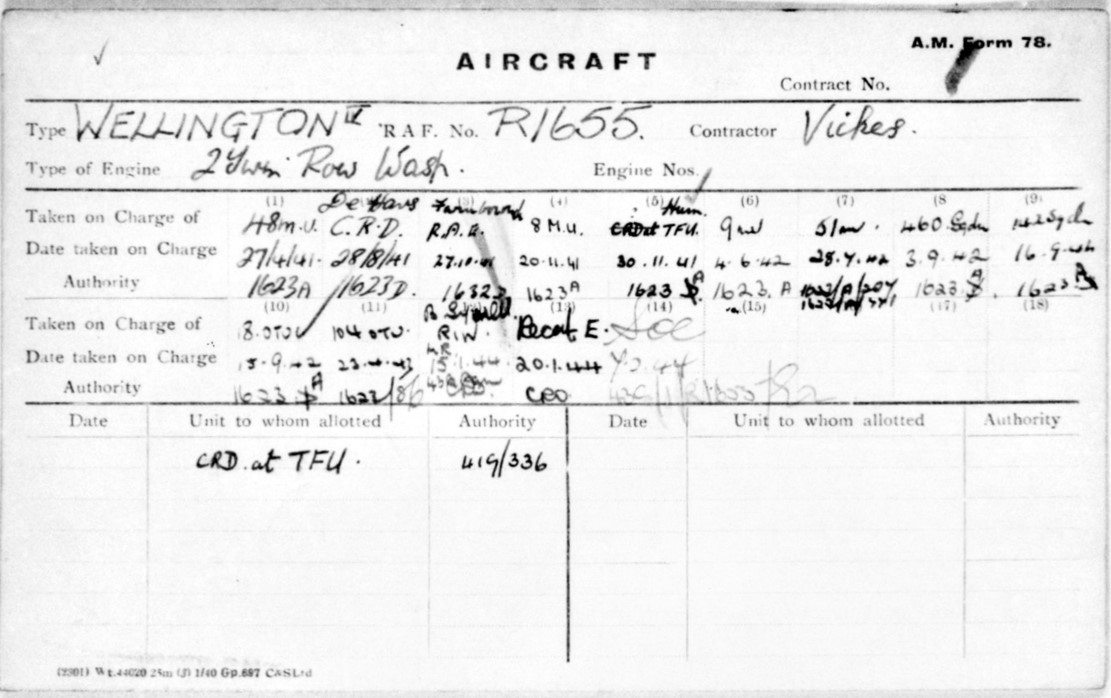 A.M. Form 78.
AIRCRAFT
Contract No.
Type WELLINGTON IV R.A.F. No. R1655. Contractor Vickes.
Type of Engine 2 Twin Row Wasp. Engine Nos.
(1) (3) (4) (5) (6) (7) (8 (9)
De Havs Farnboro Hurn.
Taken on Charge of 48 M.U. C.R.D. R.A.E. 8 M.U. CRD at TFU. 9 MU 51 MU. 460 Sqdn 142 Sqdn
Date taken on Charge 27/4/41. 28/8/41 27.10.41 20.11.41 30.11.41 4.6.42 28.7.42 3.9.42 16.9.
Authority 1623A 1623D. 1623 1623A 1623 A 1623.A 1623/A/207 1623 A 1623 A
(10) (11) (13) (14) (15) (17) (18)
Taken on Charge of 18.OTU 104 OTU RIW. Recat E. SOC
Date taken on Charge 15.9.42 23.4.43 15.1.44 20.1.44 7.2.44
Authority 1623 A 1623/86 CRO
Date Unit to whom allotted Authority Date Unit to whom allotted Authority
CRD. at TFU. 419/336
(2301) Wt.44020 25m (J) 1/40 Gp.697 C&S Ltd